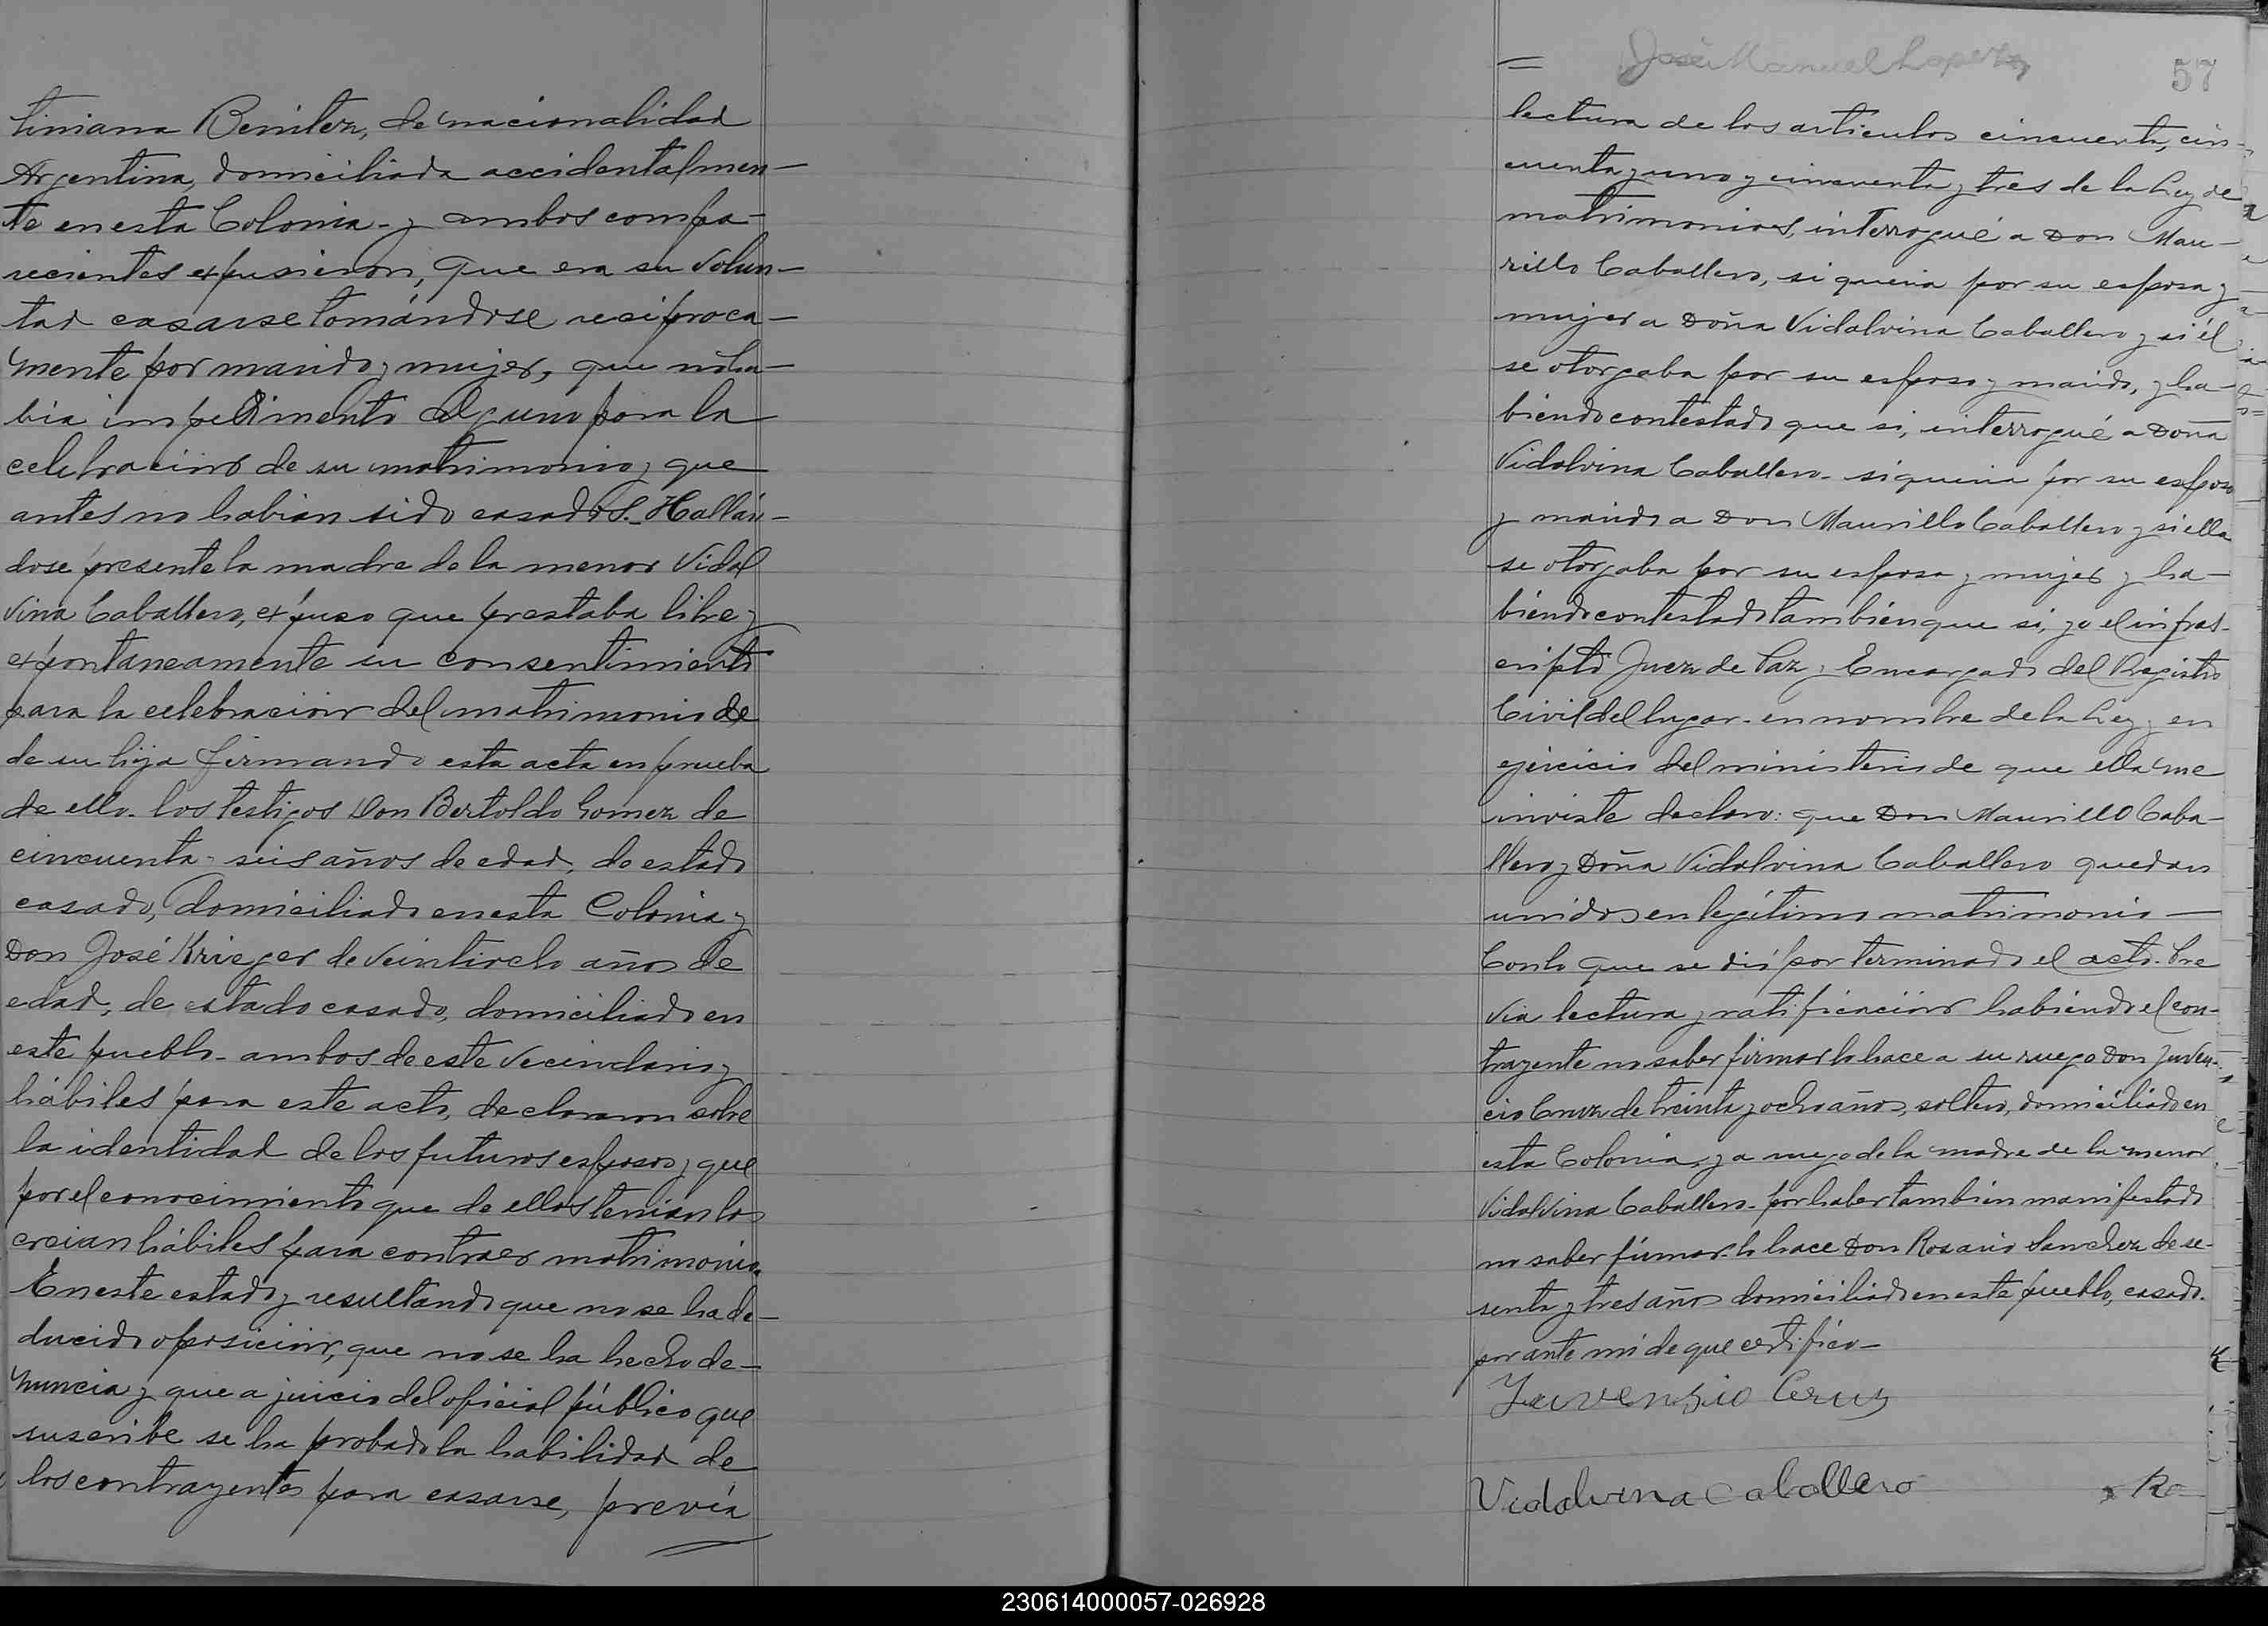 tiniana Benitez, de nacionalidad
Argentina, domiciliada accidentalmen-
te en esta Colonia - y ambos compa-
recientes expusieron, que era su volun-
tad casarse tomándose reciproca-
mente por marido y mujer, que no ha-
bia impedimento alguno para la
celebracion de su matrimonio y que
antes no habian sido casados. Hallán-
dose presente la madre de la menor Vidal
vina Caballero, expuso que prestaba libre y
expontaneamente su consentimiento
para la celebracion del matrimonio de
de su hija firmando esta acta en prueba
de ello. los testigos Don Bertoldo Gomez de
cincuenta y seis años de edad, de estado
casado, domiciliado en esta Colonia y
Don José Krieger de veintiocho años de
edad, de estado casado, domiciliado en
este pueblo - ambos de este vecindario y
hábiles para este acto, declararon sobre
la identidad de los futuros esposos y que
por el conocimiento que de ellos tenian los
creian hábiles para contraer matrimonio.
En este estado y resultando que no se ha de-
ducido oposicion, que no se ha hecho de-
nuncia y que a juicio del oficial público que
suscribe se ha probado la habilidad de
los contrayentes para casarse, previa
José Manuel Lopez
57
lectura de los articulos cincuenta, cin-
cuenta y uno y cincuenta y tres de la Ley de
matrimonios, interrogué a Don Mau-
rillo Caballero, si queria por su esposa y
mujer a Doña Vidalvina Caballero y si él
se otorgaba por su esposo y marido, y ha-
biendo contestado que si, interrogué a Doña
Vidalvina Caballero - si queria por su esposo
y marido a Don Maurillo Caballero y si ella
se otorgaba por su esposa y mujer y ha-
biendo contestado también que si, yo el infras-
cripto Juez de Paz y Encargado del Registro
Civil del lugar - en nombre de la Ley y en
ejercicio del ministerio de que ella me
inviste declaro: que Don Maurillo Caba-
llero y Doña Vidalvina Caballero quedan
unidos en legítimo matrimonio —
Con lo que se dió por terminado el acto. Pre
via lectura y ratificación habiendo el con-
trayente no saber firmar lo hace a su ruego Don Juven-
cio Cruz de treinta y ocho años, soltero, domiciliado en
esta Colonia, y a ruego de la madre de la menor
Vidalvina Caballero - por haber tambien manifestado
no saber firmar - lo hace Don Rosario Sanchez de se-
senta y tres años domiciliado en este pueblo, casado.
por ante mi de que certifico -
Juvensio Cruz
Vidalvina Caballero
230614000057-026928